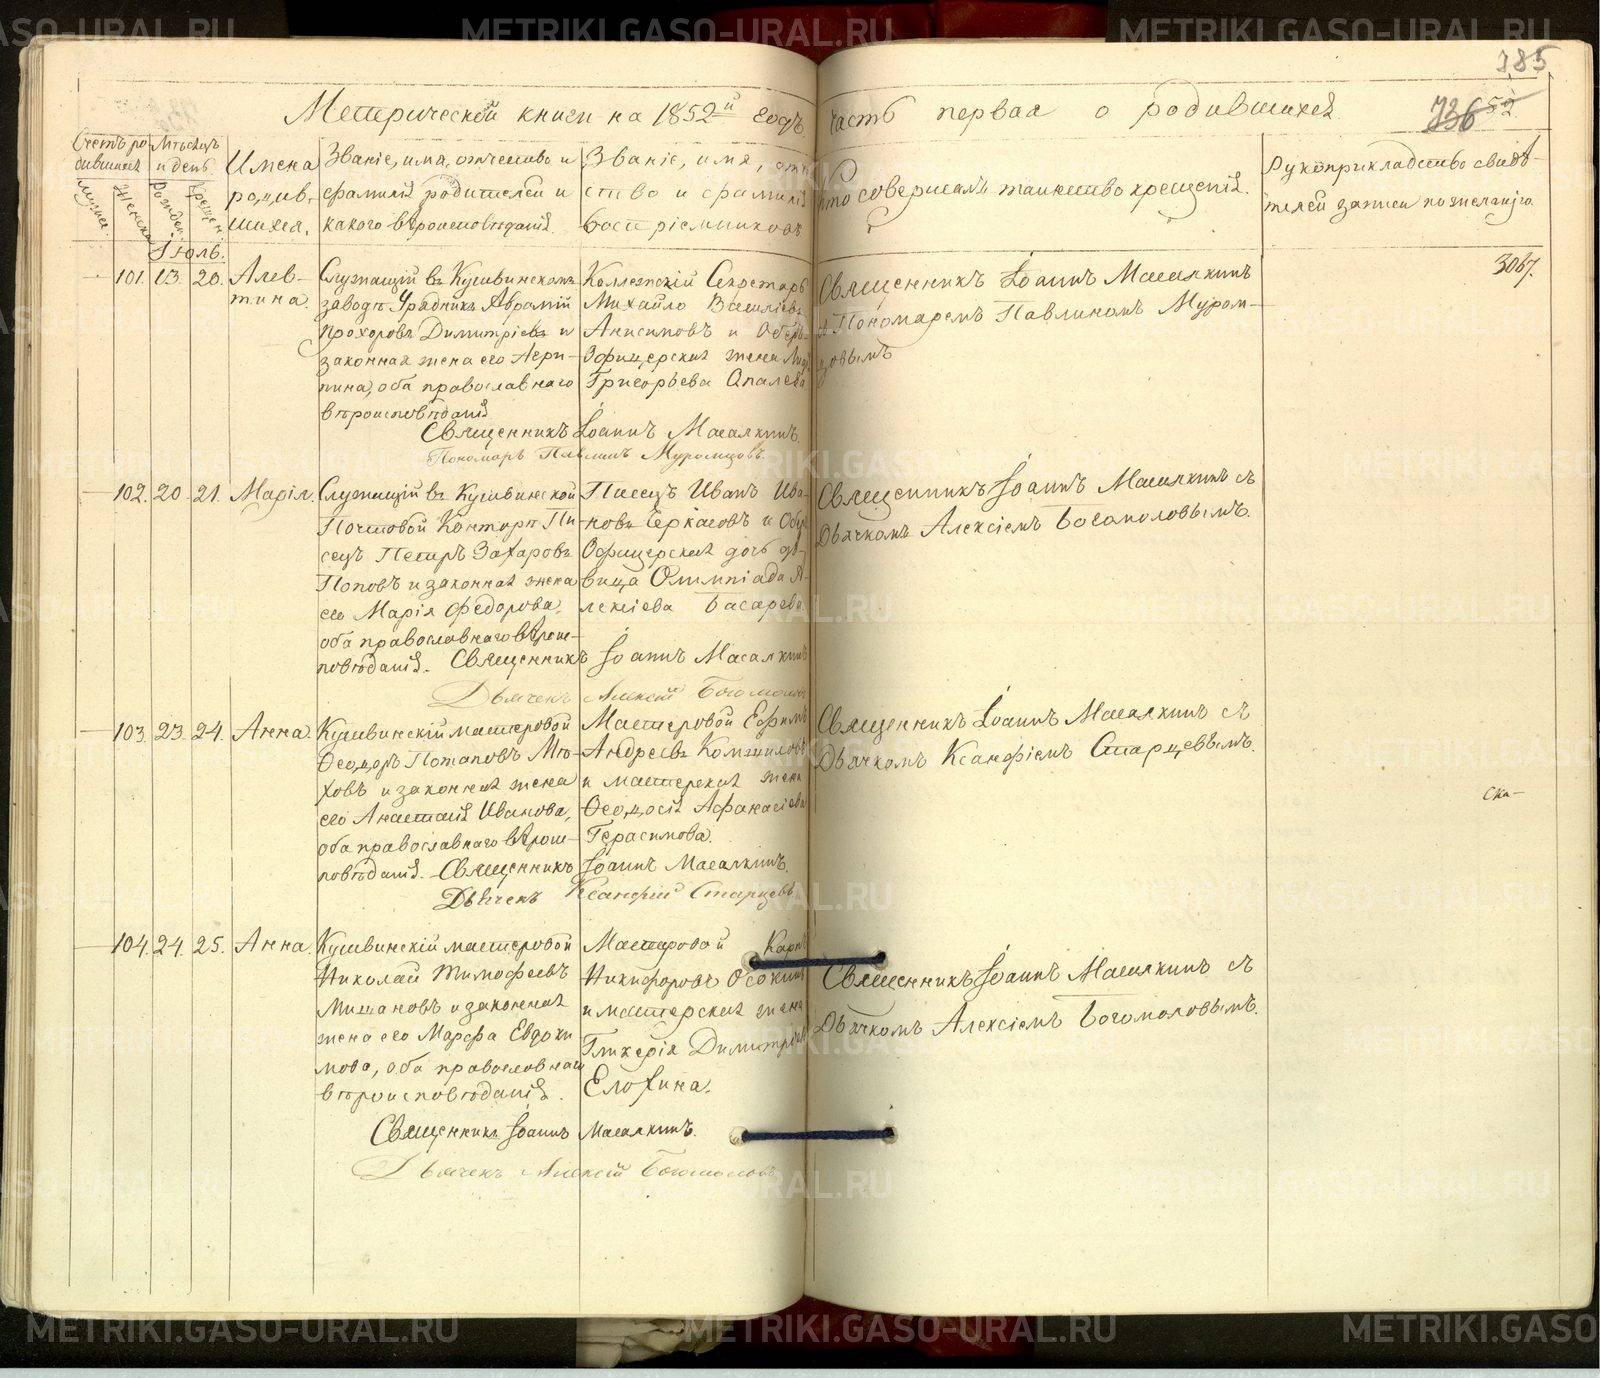 METRIKI.GASO-URAL.RU
185
736 52
Метрической книги на 1852й годъ часть первая о родившихся
Счетъ ро-
дившихся
Мѣсяцъ
и день.
мужес.
женска
рожден.
крещен
Имена
родив-
шихся.
Званіе, имя, отчество и
фамилія родителей и
какого вѣроисповѣданія.
Званіе, имя, отче-
ство и фамилія
воспріемниковъ
Кто совершалъ таинство крещенія.
Рукоприкладство свидѣ-
телей записи по желанію
Іюль.
101. 13. 20. Алев-
тина.
Служащій въ Кушвинскомъ
заводѣ Урядникъ Аврамій
Прохоровъ Димитріевъ и
законная жена его Агри-
пина, оба православнаго
вѣроисповѣданія
Коллежскій Секретарь
Михайло Васильевъ
Анисимовъ и Оберъ-
Офицерская жена
Григорьева Опалева
Священникъ Іоаннъ Масалкинъ
съ Пономаремъ Павлиномъ Муром-
цовымъ
3067.
Священникъ Іоаннъ Масалкинъ.
Пономарь Павлинъ Муромцовъ.
102. 20. 21. Марія.
Служащій въ Кушвинской
Почтовой Конторѣ Пи-
сецъ Петръ Захаровъ
Поповъ и законная жена
его Марія Федорова.
оба православнаго вѣрои-
повѣданія.
Писецъ Иванъ Ива-
новъ Черкасовъ и Оберъ
Офицерская дочь дѣ-
вица Олимпіада А-
лексіева Басарева
Священникъ Іоаннъ Масалкинъ съ
Дьячкомъ Алексіемъ Богомоловымъ.
Священникъ Іоаннъ Масалкинъ
Дьячекъ Алексій Богомоловъ
103. 23. 24. Анна.
Кушвинскій мастеровой
Ѳеодоръ Потаповъ Мѣ-
ховъ и законная жена
его Анастасія Иванова,
оба православнаго вѣрои-
повѣданія.
Мастеровой Ефимъ
Андреевъ
и мастерская жена
Ѳеодосія Афанасіева
Герасимова.
Священникъ Іоаннъ Масалкинъ съ
Дьячкомъ Ксанфіемъ Старцевымъ.
Священникъ Іоаннъ Масалкинъ.
Дьячекъ Ксанфій Старцевъ
104. 24. 25. Анна.
Кушвинскій мастеровой
Николай Тимофеевъ
Мишановъ и законная
жена его Марфа Евдоки
мова, оба православнаго
вѣроисповѣданія.
Мастеровой Карпъ
Никифоровъ Осокинъ
и мастерская жена
Гликерія Димитріева
Елохина.
Священникъ Іоаннъ Масалкинъ съ
Дьячкомъ Алексіемъ Богомоловымъ.
Священникъ Іоаннъ Масалкинъ.
Дьячекъ Алексій Богомоловъ